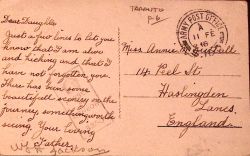 TARANTO
P6
Dear Daughter
Just a few lines to let you
know that I am alive
and kicking and that I
have not forgotten you.
There has been some
beautefull scenery on the
journey, something worth
seeing. Your loving
Father.
ARMY POST OFFICE
A
11 FE
16
Miss Annie
14. Peel St.
Haslingden
Lancs.
England.